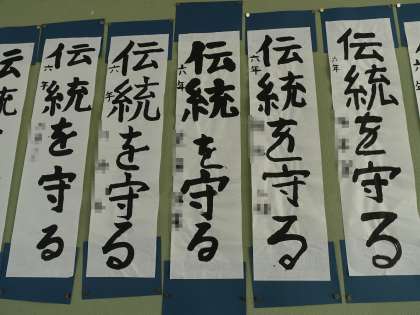 伝統を守る
六年
伝統を守る
六年
伝統を守る
六年
伝統を守る
六年
伝統を守る
六年
伝統